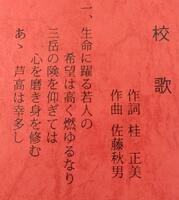 校歌
作詞 桂 正美
作曲 佐藤秋男
一、生命に躍る若人の
希望は高く燃ゆるなり
三岳の険を仰ぎては
心を磨き身を修む
あゝ 芦高は幸多し